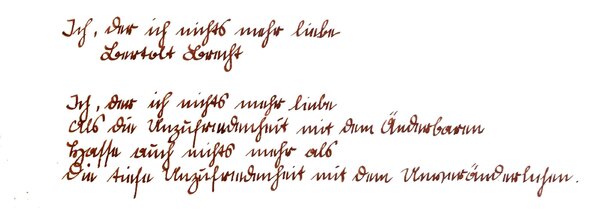 Ich, der ich nichts mehr liebe
Bertolt Brecht
Ich, der ich nichts mehr liebe
Als die Unzufriedenheit mit dem Änderbaren
Hasse auch nichts mehr als
Die tiefe Unzufriedenheit mit dem Unveränderlichen.